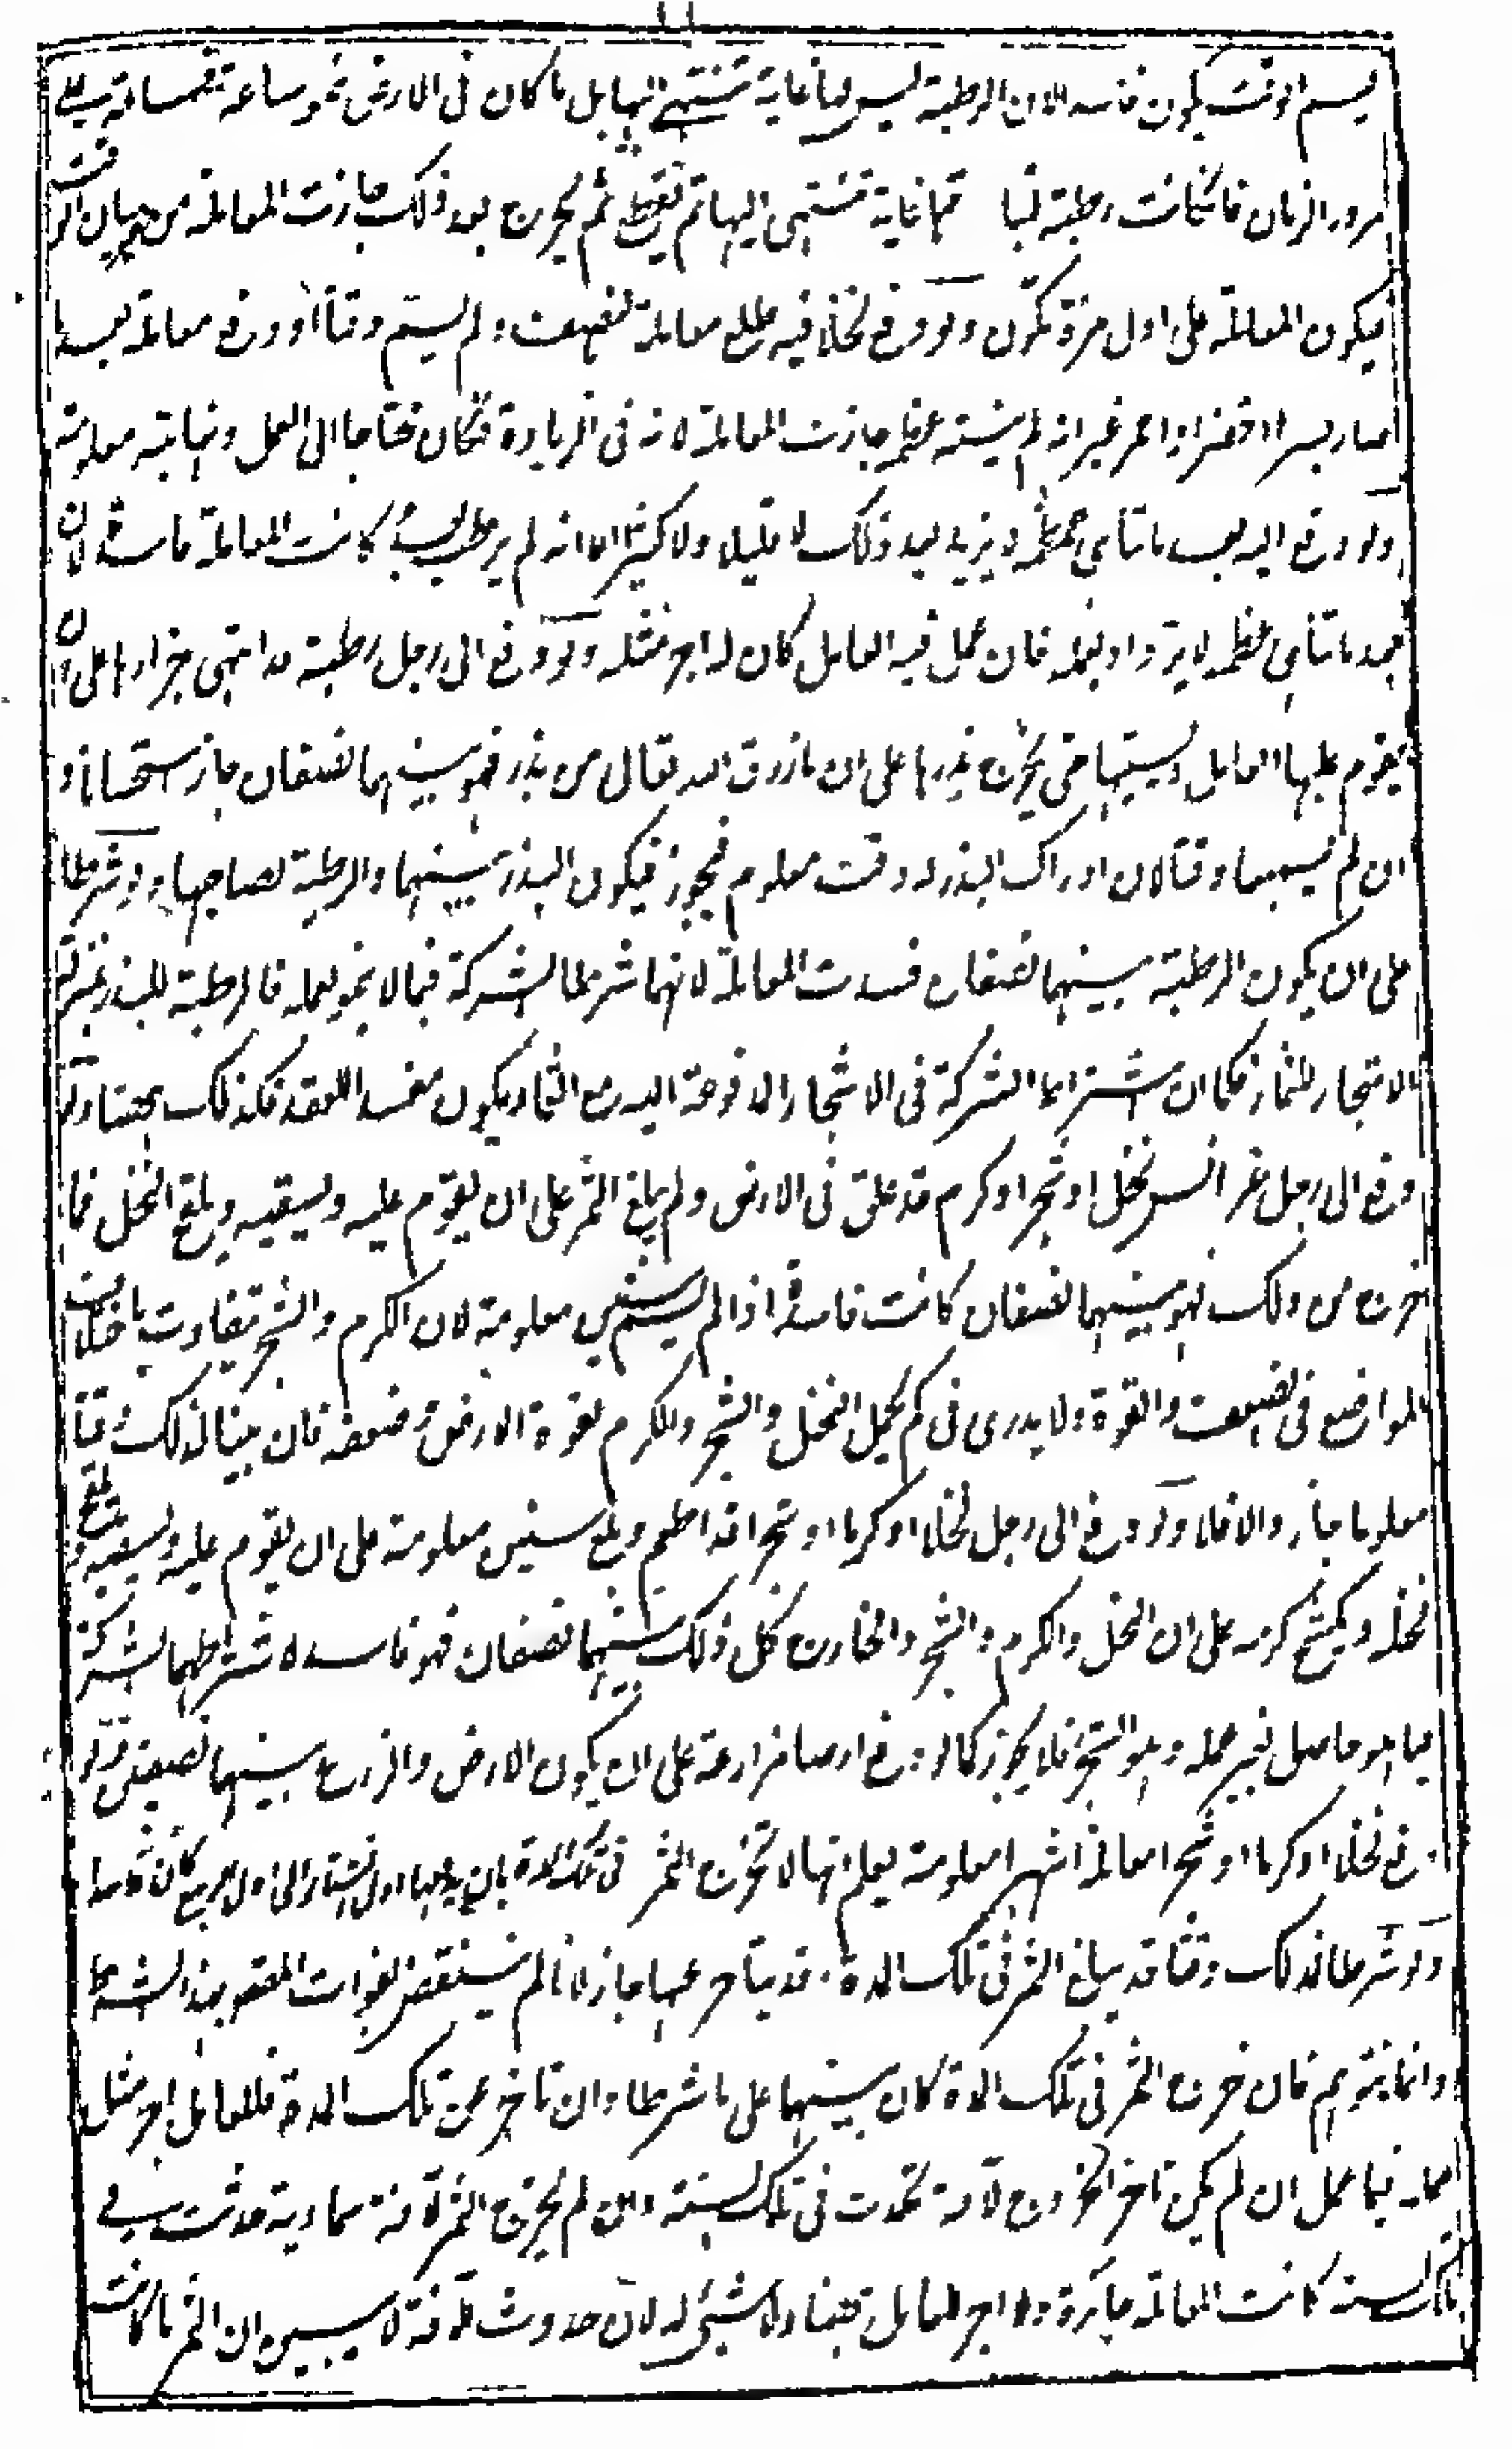 يسم الوقت يكون فاسدا لان الرطبة ليس لها غاية تنتهى اليها بل ما كان فى الارض نمو ساعة فساعة على
مرور الزمان فان كانت رطبة لها غاية تنتهى اليها ثم تقطع ثم يخرج بعد ذلك جازت المعاملة من غير بيان الوقت
فيكون المعاملة على اول مرة تكون ولو دفع نخلا فيه طلع معاملة بنصف ولم يسم وقتا او دفع معاملة بعد ما
صار بسرا اخضر او احمر غير انه لم ينته عظمه جازت المعاملة لانه فى الزيادة فكان محتاجا الى العمل ونهايته معلومة
ولو دفع اليه بعد ما تناهى عظمه لا يزيد بعد ذلك لا قليلا ولا كثيرا الا انه لم يرطب بسره كانت المعاملة فاسدة لان
بعد ما تناهى عظمه لا يزداد بعمله فان عمل فيه العامل كان له اجر مثله ولو دفع الى رجل رطبة قد انتهى جزازها على ان
يقوم عليها العامل ويسقيها حتى يخرج بذرها على ان ما رزق الله تعالى من بذر فهو بينهما نصفان جاز استحسانا و
ان لم يسميا وقتا لان ادراك البذر له وقت معلوم فيجوز فيكون البذر بينهما والرطبة لصاحبها ولو شرطا
على ان يكون الرطبة بينهما نصفان فسدت المعاملة لانهما شرطا الشركة فيما لا ينمو بعمله فالرطبة للبذر بمنزلة
الاشجار للثمار فكما ان اشتراط الشركة فى الاشجار المدفوعة اليه مع الثمار يكون مفسدا للعقد فكذلك ههنا ولو
دفع الى رجل غراس نخل او شجر او كرم قد علق فى الارض ولم يبلغ الثمر على ان يقوم عليه ويسقيه ويلقح النخل فما
خرج من ذلك فهو بينهما نصفان كانت فاسدة اذا لم يسم سنين معلومة لان الكرم والشجر يتفاوت باختلاف
المواضع فى الضعف والقوة ولا يدرى فى كم يحمل النخل والشجر والكرم لقوة الارض وضعفه فان بينا لذلك وقتا
معلوما جاز والا فلا ولو دفع الى رجل نخلا او كرما او شجرا قد اطعم وبلغ سنين معلومة على ان يقوم عليه ويسقيه ويلقح
نخله ويكسح كرمه على ان النخل والكرم والشجر والخارج كل ذلك بينهما نصفان فهو فاسد لاشتراطهما الشركة
فيما هو حاصل بغير عمله وهو الشجر فلا يجوز كما لو دفع ارضا مزارعة على ان يكون الارض والزرع بينهما نصفين ولو
دفع نخلا او كرما او شجرا معاملة اشهرا معلومة يعلم انها لا تخرج الثمر فى تلك المدة بان دفعها اول الشتاء الى اول الربيع كان فاسدا
ولو شرطا لذلك وقتا قد يبلغ الثمر فى تلك المدة وقد يتاخر عنها جاز لانا لم نستيقن بفوات المقصود بهذا الشرط
وانما يتوهم فان خرج الثمر فى تلك المدة كان بينهما على ما شرطا وان تاخر عن تلك المدة فللعامل اجر مثل
عمله فيما عمل ان لم يكن تاخر الخروج لآفة تحدث فى تلك السنة وان لم يخرج الثمر لآفة سماوية حدثت فى
تلك السنة كانت المعاملة جائزة ولا اجر للعامل ههنا ولا شىء له لان حدوث الآفة لا يتبين ان الثمر ما كانت